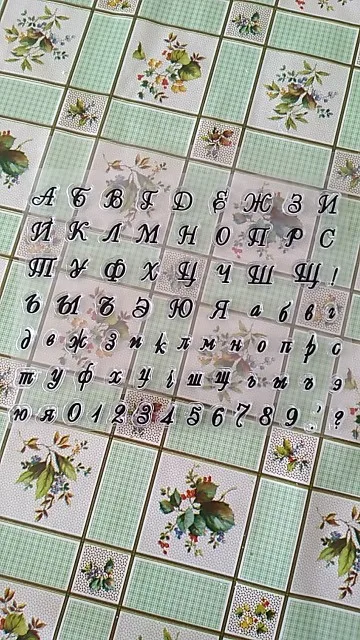 А Б В Г D Ё Ж З И
Й К Л М Н О П Р С
Т У Ф Х Ц Ч Ш Щ !
Ъ Ы Ь Э Ю Я а б в г
д е ж з и к л м н о п р с
т у ф х ц ч ш щ ъ ы ь э
ю я 0 1 2 3 4 5 6 7 8 9 . , ?